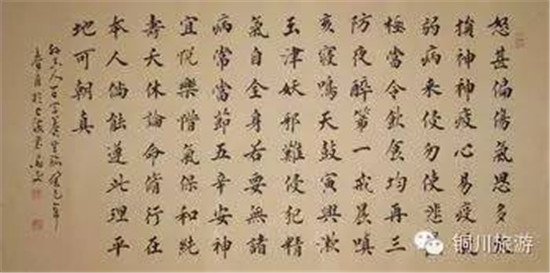 怒甚偏傷氣思多
損神神疲心易疲
弱病来侵勿使悲
極當令飲食均再三
防夜醉第一戒晨嗔
亥寢鳴天鼓寅興漱
玉津妖邪難侵犯精
氣自全身若要無諸
病常當節五辛安神
宜悅樂惜氣保和純
壽夭休論命脩行在
本人倘能遵此理平
地可朝真
孫真人百字養生銘癸巳年
春月於上海
铜川旅游